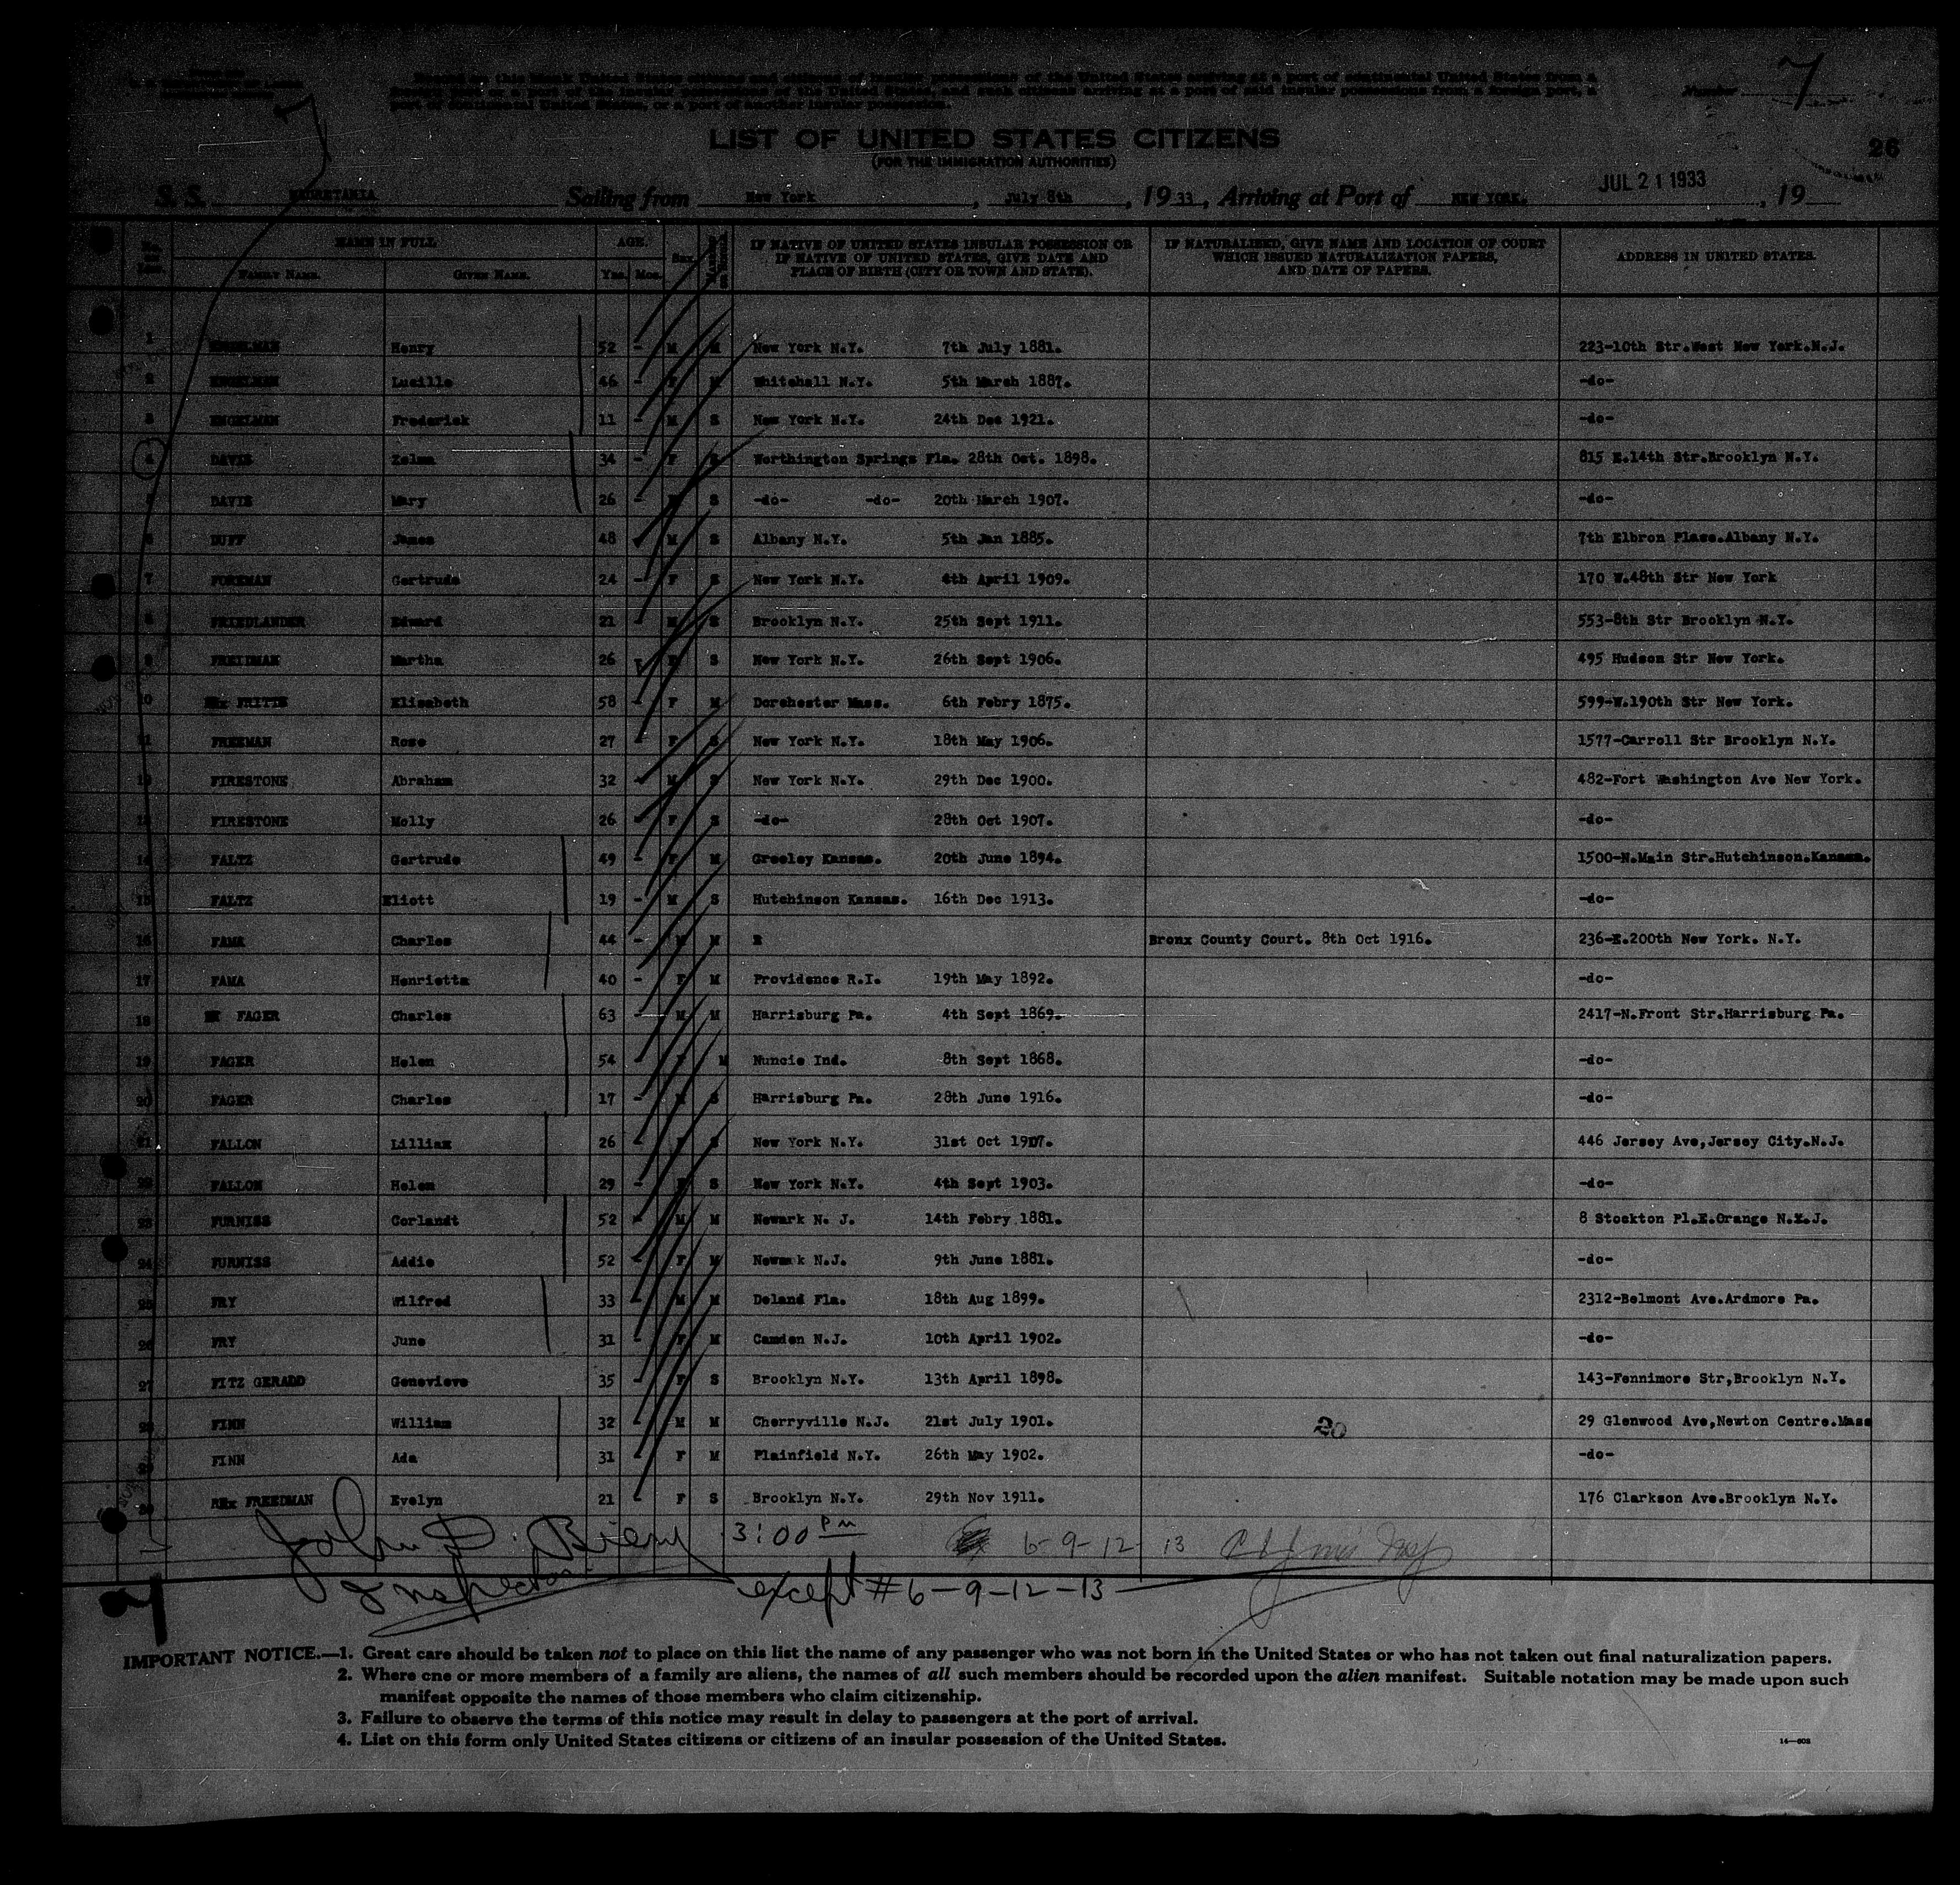 Number 7
LIST OF UNITED STATES CITIZENS
(FOR THE IMMIGRATION AUTHORITIES)
26
S. S. Sailing from New York, July 8th, 1933, Arriving at Port of NEW YORK. JUL 21 1933, 19
No. on List. NAME IN FULL AGE. Sex IF NATIVE OF UNITED STATES INSULAR POSSESSION OR IF NATIVE OF UNITED STATES, GIVE DATE AND PLACE OF BIRTH (CITY OR TOWN AND STATE). IF NATURALIZED, GIVE NAME AND LOCATION OF COURT WHICH ISSUED NATURALIZATION PAPERS, AND DATE OF PAPERS. ADDRESS IN UNITED STATES.
FAMILY NAME. GIVEN NAME. Yrs. Mos.
1 ENGELMAN Henry 52 - M M New York N.Y. 7th July 1881. 223-10th Str.West New York.N.J.
2 ENGELMAN Lucille 46 - F M Whitehall N.Y. 5th March 1887. -do-
3 ENGELMAN Frederick 11 - M S New York N.Y. 24th Dec 1921. -do-
4 DAVIS Zelma 34 - F S Worthington Springs Fla. 28th Oct. 1898. 815 E.14th Str.Brooklyn N.Y.
5 DAVIS Mary 26 - S -do- -do- 20th March 1907. -do-
6 DUFF James 48 M S Albany N.Y. 5th Jan 1885. 7th Elbron Place.Albany N.Y.
7 FOREMAN Gertrude 24 - F S New York N.Y. 4th April 1909. 170 W.48th Str New York
8 FRIEDLANDER Edward 21 - M S Brooklyn N.Y. 25th Sept 1911. 553-8th Str Brooklyn N.Y.
9 FREIDMAN Martha 26 S New York N.Y. 26th Sept 1906. 495 Hudson Str New York.
10 FRITTS Elizabeth 58 - F M Dorchester Mass. 6th Febry 1875. 599-W.190th Str New York.
11 FREEMAN Rose 27 - F S New York N.Y. 18th May 1906. 1577-Carroll Str Brooklyn N.Y.
12 FIRESTONE Abraham 32 - M S New York N.Y. 29th Dec 1900. 482-Fort Washington Ave New York.
13 FIRESTONE Molly 26 - F S -do- 28th Oct 1907. -do-
14 FALTZ Gertrude 49 - F M Greeley Kansas. 20th June 1894. 1500-N.Main Str.Hutchinson.Kansas.
15 FALTZ Eliott 19 - M S Hutchinson Kansas. 16th Dec 1913. -do-
16 FAMA Charles 44 - M M Bronx County Court. 8th Oct 1916. 236-E.200th New York. N.Y.
17 FAMA Henrietta 40 - F M Providence R.I. 19th May 1892. -do-
18 FAGER Charles 63 - M M Harrisburg Pa. 4th Sept 1869. 2417-N.Front Str.Harrisburg Pa.
19 FAGER Helen 54 - F M Nuncie Ind. 8th Sept 1868. -do-
20 FAGER Charles 17 - M S Harrisburg Pa. 28th June 1916. -do-
21 FALLON Lillian 26 - F S New York N.Y. 31st Oct 1907. 446 Jersey Ave,Jersey City.N.J.
22 FALLON Helen 29 - F S New York N.Y. 4th Sept 1903. -do-
23 FURNISS Corlandt 52 - M M Newark N. J. 14th Febry 1881. 8 Stockton Pl.E.Orange N.J.
24 FURNISS Addie 52 - F M Newark N.J. 9th June 1881. -do-
25 FRY Wilfred 33 - M M Deland Fla. 18th Aug 1899. 2312-Belmont Ave.Ardmore Pa.
26 FRY June 31 - F M Camden N.J. 10th April 1902. -do-
27 FITZ GERALD Genevieve 35 - F S Brooklyn N.Y. 13th April 1898. 143-Fennimore Str,Brooklyn N.Y.
28 FINN William 32 - M M Cherryville N.J. 21st July 1901. 20 29 Glenwood Ave,Newton Centre.Mass
29 FINN Ada 31 - F M Plainfield N.Y. 26th May 1902. -do-
30 FREEDMAN Evelyn 21 - F S Brooklyn N.Y. 29th Nov 1911. 176 Clarkson Ave.Brooklyn N.Y.
John D. 3:00 PM 6-9-12 13
Inspector except #6-9-12-13
IMPORTANT NOTICE.—1. Great care should be taken not to place on this list the name of any passenger who was not born in the United States or who has not taken out final naturalization papers.
2. Where one or more members of a family are aliens, the names of all such members should be recorded upon the alien manifest. Suitable notation may be made upon such
manifest opposite the names of those members who claim citizenship.
3. Failure to observe the terms of this notice may result in delay to passengers at the port of arrival.
4. List on this form only United States citizens or citizens of an insular possession of the United States.